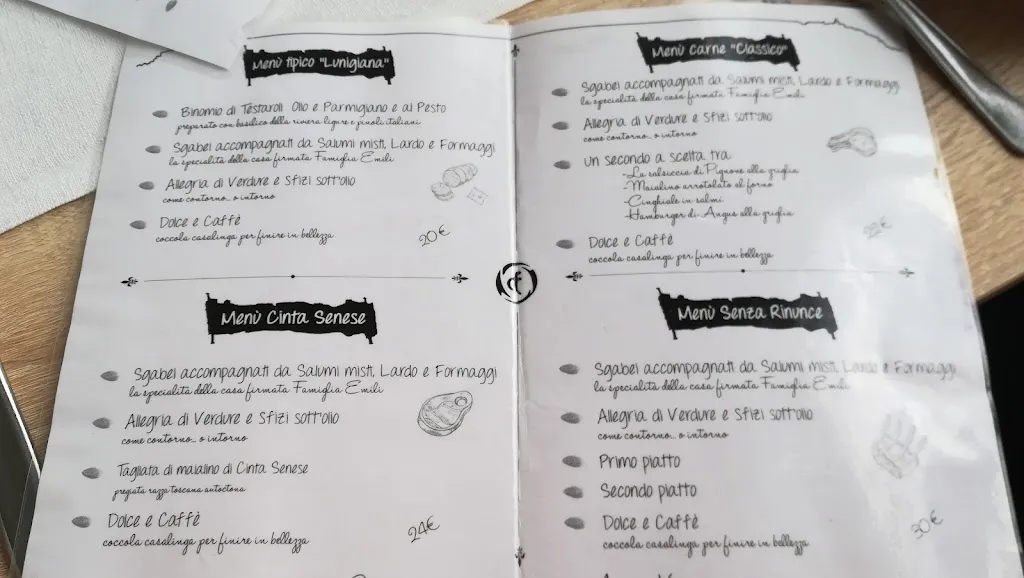 Menù tipico "Lunigiana"
Binomio di Testaroli Olio e Parmigiano e al Pesto
preparato con basilico della riviera ligure e pinoli italiani
Sgabei accompagnati da Salumi misti, Lardo e Formaggi
la specialità della casa firmata Famiglia Emili
Allegria di Verdure e Sfizi sott'olio
come contorno... o intorno
Dolce e Caffè
coccola casalinga per finire in bellezza
20€
Menù Cinta Senese
Sgabei accompagnati da Salumi misti, Lardo e Formaggi
la specialità della casa firmata Famiglia Emili
Allegria di Verdure e Sfizi sott'olio
come contorno... o intorno
Tagliata di maialino di Cinta Senese
pregiata razza toscana autoctona
Dolce e Caffè
coccola casalinga per finire in bellezza
24€
Menù Carne "Classico"
Sgabei accompagnati da Salumi misti, Lardo e Formaggi
la specialità della casa firmata Famiglia Emili
Allegria di Verdure e Sfizi sott'olio
come contorno... o intorno
un secondo a scelta tra
-La salsiccia di Pignone alla griglia
-Maialino arrotolato al forno
-Cinghiale in salmì
-Hamburger di Angus alla griglia
Dolce e Caffè
coccola casalinga per finire in bellezza
22€
cf
Menù Senza Rinunce
Sgabei accompagnati da Salumi misti, Lardo e Formaggi
la specialità della casa firmata Famiglia Emili
Allegria di Verdure e Sfizi sott'olio
come contorno... o intorno
Primo piatto
Secondo piatto
Dolce e Caffè
coccola casalinga per finire in bellezza
30€